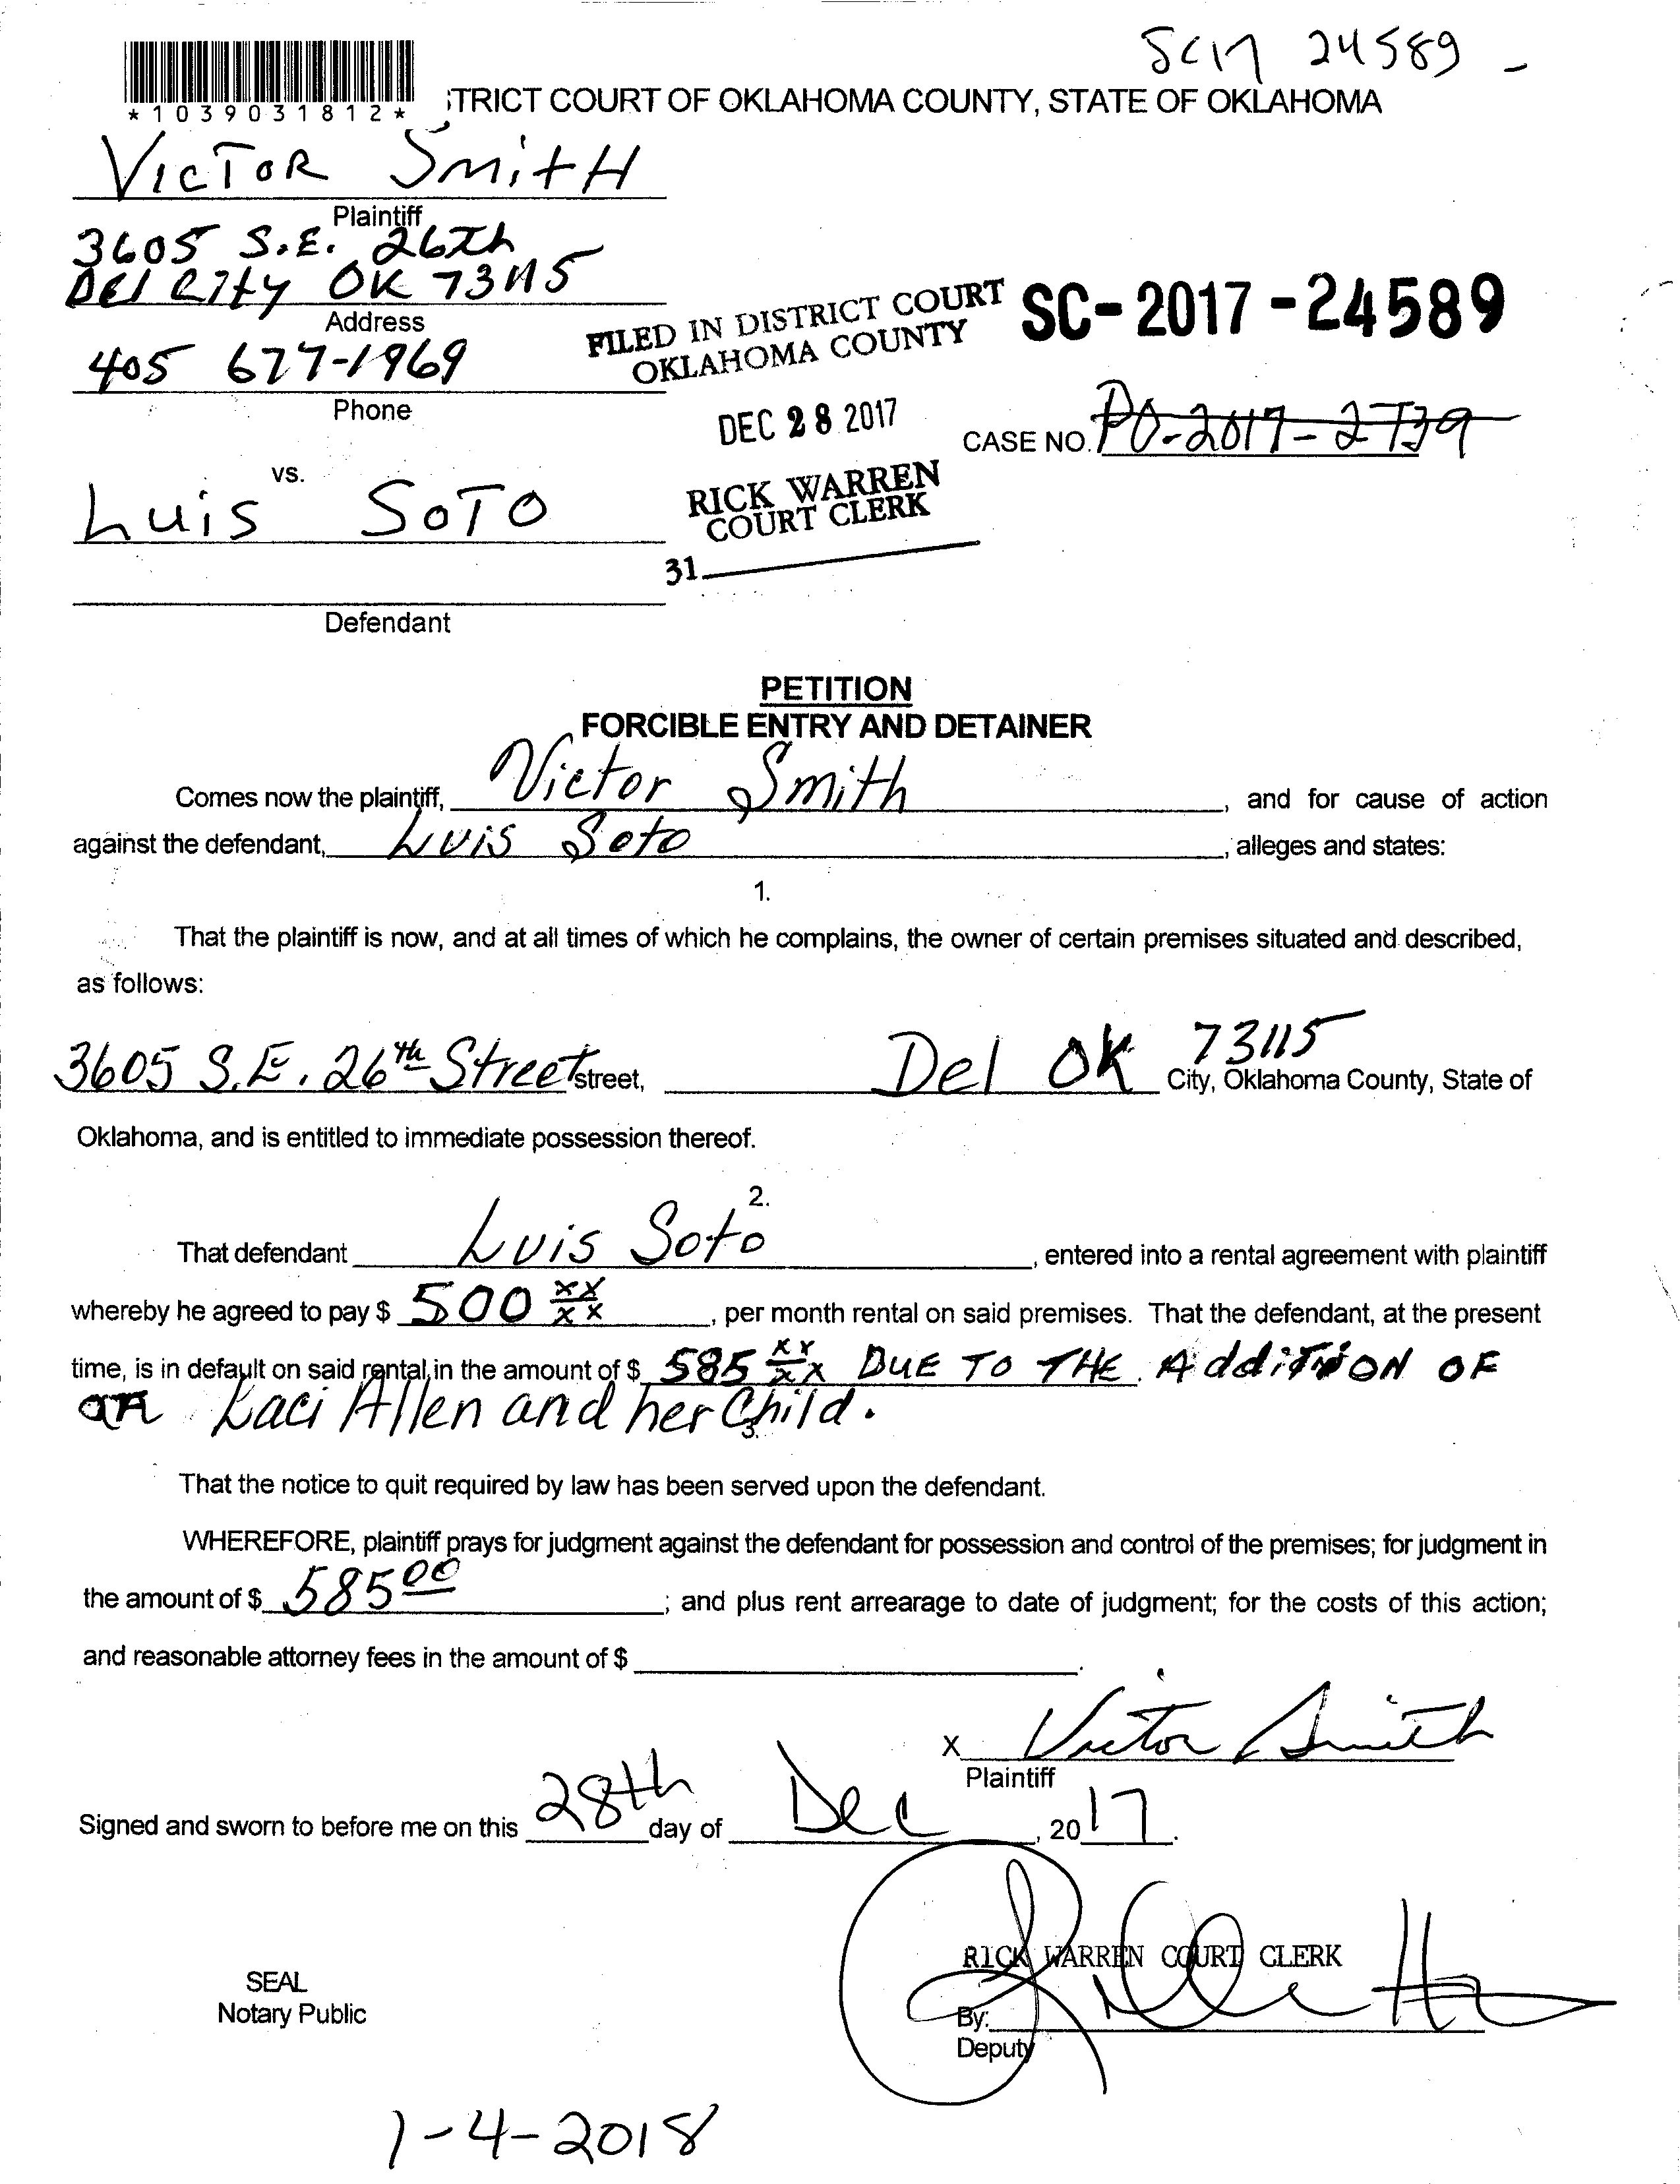 SC17 24589 -
*1039031812*
TRICT COURT OF OKLAHOMA COUNTY, STATE OF OKLAHOMA
VICTOR SMITH
Plaintiff
3605 S.E. 26th
Del City OK 73115
Address
FILED IN DISTRICT COURT
OKLAHOMA COUNTY
SC-2017-24589
405 677-1969
Phone
DEC 28 2017
CASE NO. PO-2017-2739
vs.
RICK WARREN
COURT CLERK
Luis SOTO
31
Defendant
PETITION
FORCIBLE ENTRY AND DETAINER
Comes now the plaintiff, Victor Smith, and for cause of action
against the defendant, Luis Soto, alleges and states:
1.
That the plaintiff is now, and at all times of which he complains, the owner of certain premises situated and described,
as follows:
3605 S.E. 26th Street street, Del OK 73115 City, Oklahoma County, State of
Oklahoma, and is entitled to immediate possession thereof.
2.
That defendant Luis Soto, entered into a rental agreement with plaintiff
whereby he agreed to pay $ 500 xx/xx, per month rental on said premises. That the defendant, at the present
time, is in default on said rental in the amount of $ 585 xx/xx DUE TO THE AddiTION OF
Laci Allen and her Child.
3.
That the notice to quit required by law has been served upon the defendant.
WHEREFORE, plaintiff prays for judgment against the defendant for possession and control of the premises; for judgment in
the amount of $ 585 00; and plus rent arrearage to date of judgment; for the costs of this action;
and reasonable attorney fees in the amount of $ .
X Victor Smith
Plaintiff
Signed and sworn to before me on this 28th day of Dec, 2017.
RICK WARREN COURT CLERK
SEAL
Notary Public
By:
Deputy
1-4-2018